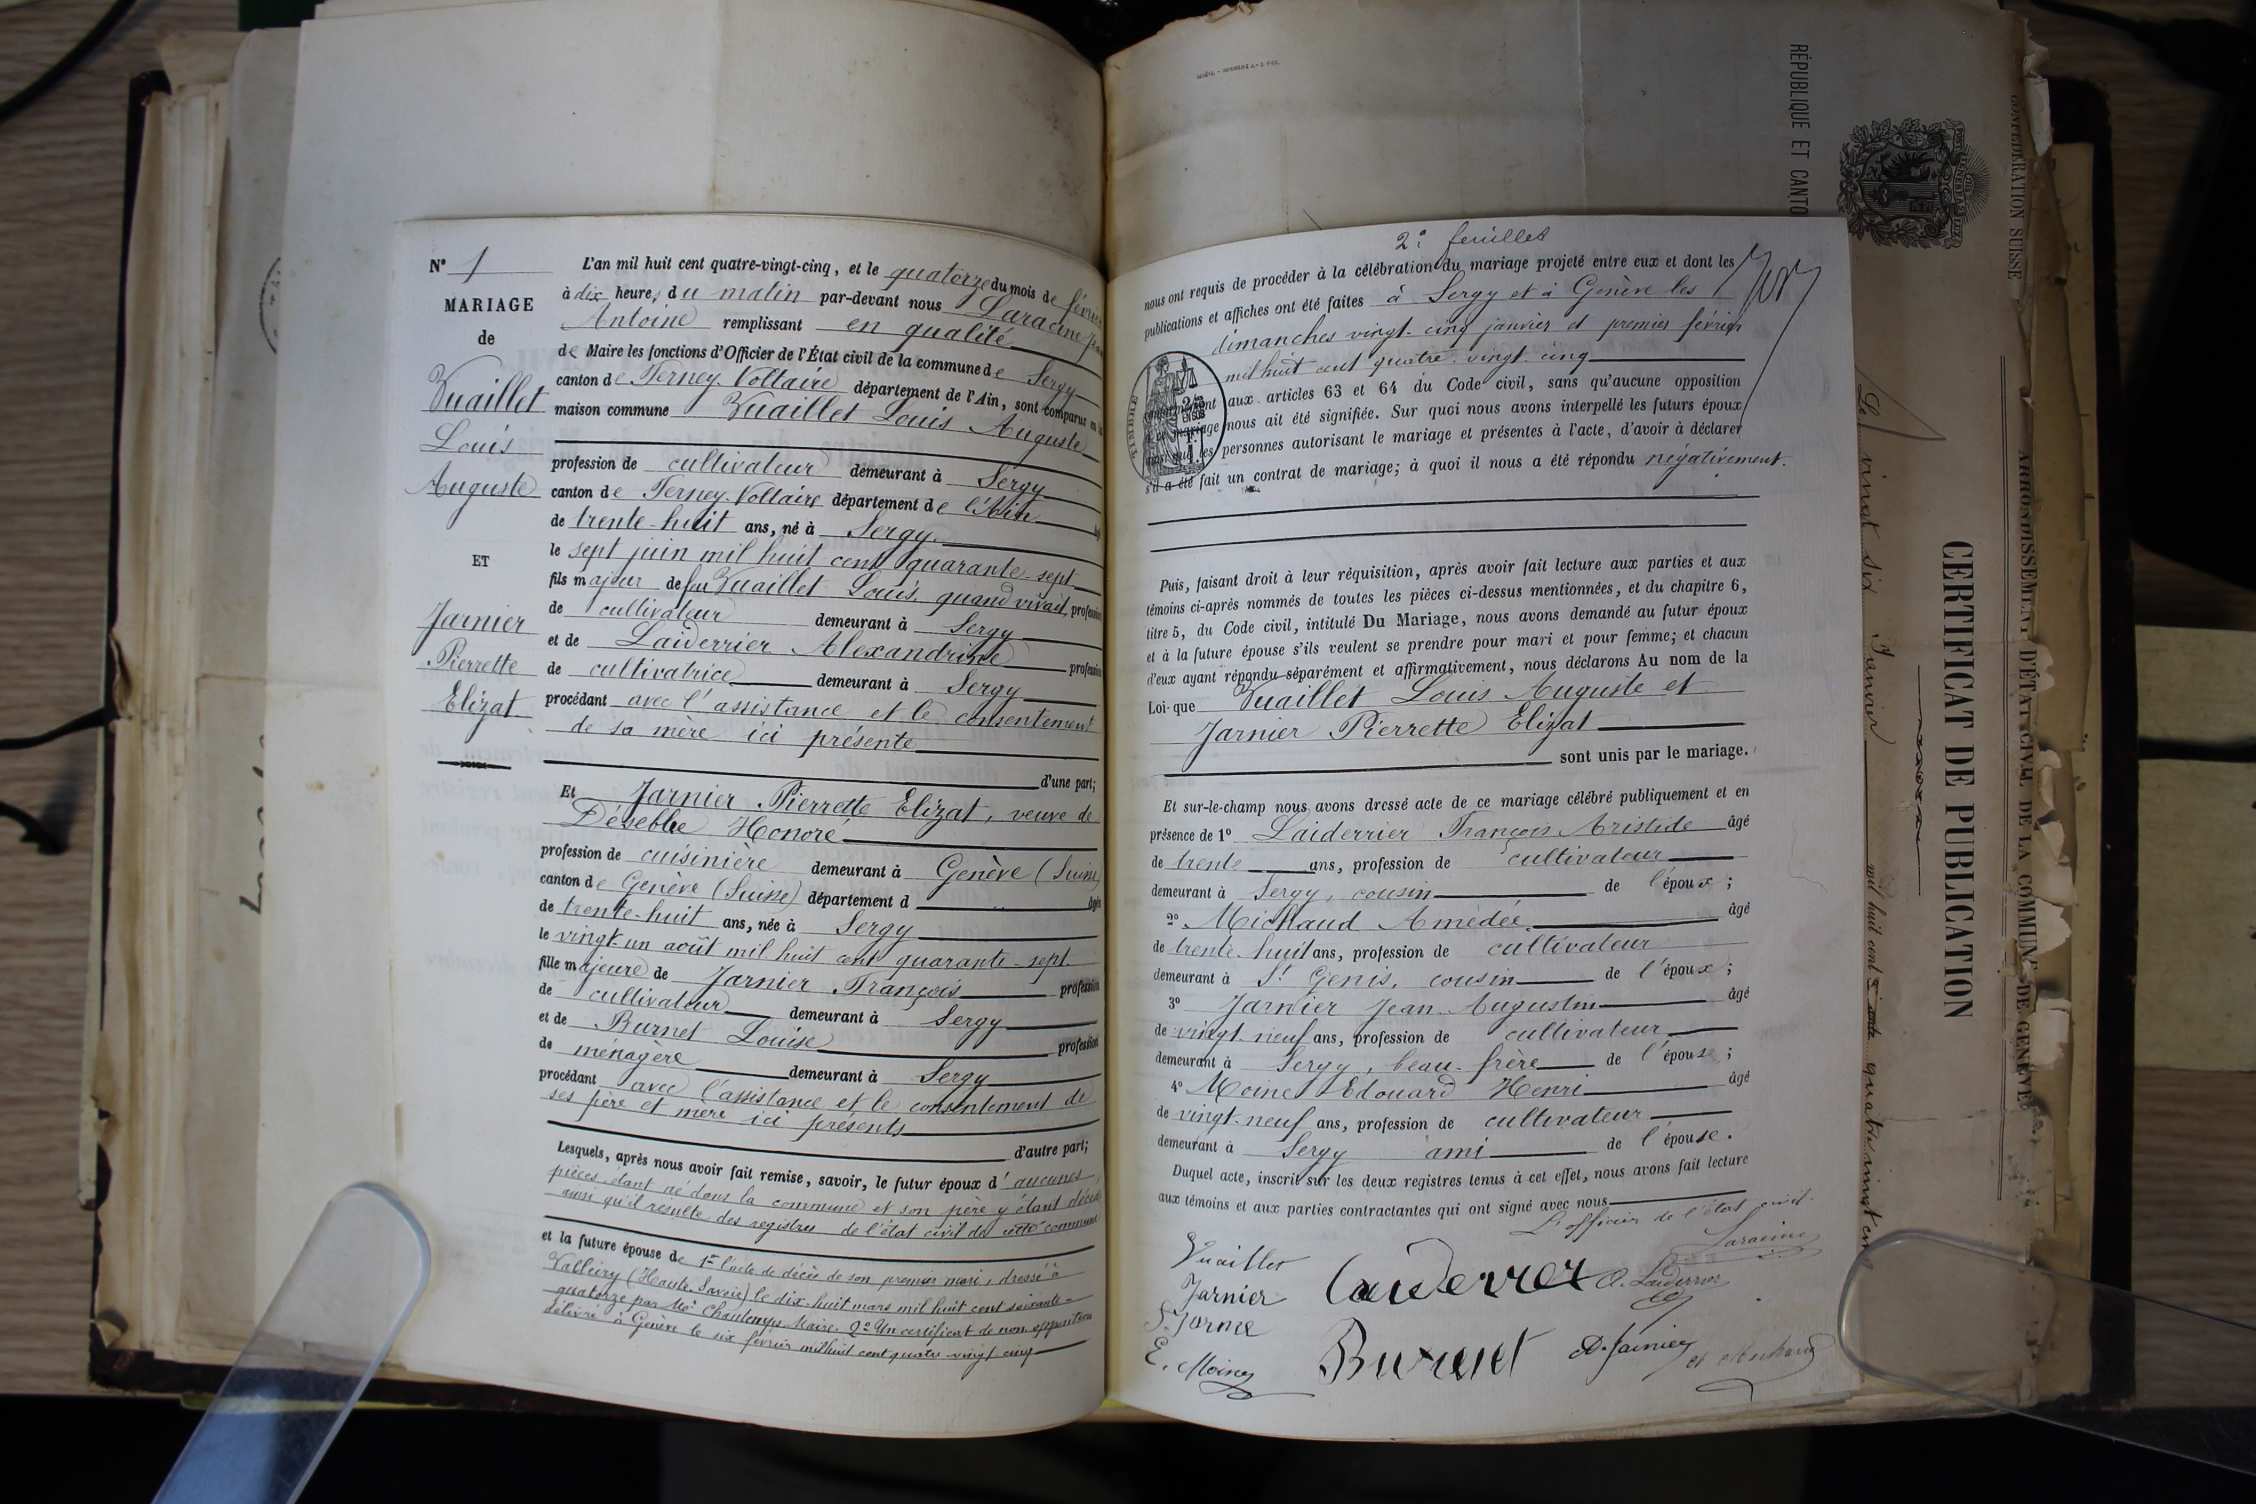 N° 1
MARIAGE
de
Vuaillet
Louis
Auguste
ET
Jarnier
Pierrette
Elizat
L'an mil huit cent quatre-vingt-cinq, et le quatorze du mois de février
à dix heures du matin par-devant nous Laracine
Antoine remplissant en qualité
de Maire les fonctions d'Officier de l'État civil de la commune de Sergy
canton de Ferney-Voltaire département de l'Ain, sont comparus en la
maison commune Vuaillet Louis Auguste
profession de cultivateur demeurant à Sergy
canton de Ferney-Voltaire département de l'Ain
de trente-huit ans, né à Sergy
le sept juin mil huit cent quarante-sept
fils majeur de feu Vuaillet Louis quand vivait, profession
de cultivateur demeurant à Sergy
et de Laiderrier Alexandrine profession
de cultivatrice demeurant à Sergy
procédant avec l'assistance et le consentement
de sa mère ici présente
d'une part;
Et Jarnier Pierrette Elizat, veuve de
Honoré
profession de cuisinière demeurant à Genève (Suisse)
canton de Genève (Suisse) département d âgée
de trente-huit ans, née à Sergy
le vingt-un août mil huit cent quarante-sept
fille majeure de Jarnier François profession
de cultivateur demeurant à Sergy
et de Burnet Louise profession
de ménagère demeurant à Sergy
procédant avec l'assistance et le consentement de
ses père et mère ici présents
d'autre part;
Lesquels, après nous avoir fait remise, savoir, le futur époux d'aucunes
pièces étant né dans la commune et son père y étant décédé
ainsi qu'il résulte des registres de l'état civil de cette commune
et la future épouse de 1° l'acte de décès de son premier mari, dressé à
Valleiry (Haute-Savoie) le dix-huit mars mil huit cent soixante-
quatorze par Mr Chautemps Maire. 2° Un certificat de non opposition
délivré à Genève le six février mil huit cent quatre vingt cinq
2e feuillet
nous ont requis de procéder à la célébration du mariage projeté entre eux et dont les
publications et affiches ont été faites à Sergy et à Genève les
dimanches vingt-cinq janvier et premier février
mil huit cent quatre-vingt-cinq
conformément aux articles 63 et 64 du Code civil, sans qu'aucune opposition
à ce mariage nous ait été signifiée. Sur quoi nous avons interpellé les futurs époux
les personnes autorisant le mariage et présentes à l'acte, d'avoir à déclarer
s'il a été fait un contrat de mariage; à quoi il nous a été répondu négativement.
TIMBRE
Puis, faisant droit à leur réquisition, après avoir fait lecture aux parties et aux
témoins ci-après nommés de toutes les pièces ci-dessus mentionnées, et du chapitre 6,
titre 5, du Code civil, intitulé Du Mariage, nous avons demandé au futur époux
et à la future épouse s'ils veulent se prendre pour mari et pour femme; et chacun
d'eux ayant répondu séparément et affirmativement, nous déclarons Au nom de la
Loi que Vuaillet Louis Auguste et
Jarnier Pierrette Elizat
sont unis par le mariage.
Et sur-le-champ nous avons dressé acte de ce mariage célébré publiquement et en
présence de 1° Laiderrier François Aristide âgé
de trente ans, profession de cultivateur
demeurant à Sergy, cousin de l'époux;
2° Michaud Amédée âgé
de trente-huit ans, profession de cultivateur
demeurant à St Genis, cousin de l'époux;
3° Jarnier Jean Augustin âgé
de vingt-neuf ans, profession de cultivateur
demeurant à Sergy, beau-frère de l'épouse;
4° Moine Edouard Henri âgé
de vingt-neuf ans, profession de cultivateur
demeurant à Sergy ami de l'épouse.
Duquel acte, inscrit sur les deux registres tenus à cet effet, nous avons fait lecture
aux témoins et aux parties contractantes qui ont signé avec nous
L'officier de l'état civil
Laracine
Vuaillet
Laiderrier
A. Laiderrier
Jarnier
E. Moine
Burnet
RÉPUBLIQUE ET CANTO
CONFÉDÉRATION SUISSE
ARRONDISSEMENT D'ÉTAT CIVIL DE LA COMMUNE DE GENÈVE
CERTIFICAT DE PUBLICATION
Le vingt six Janvier mil huit cent quatre vingt cinq